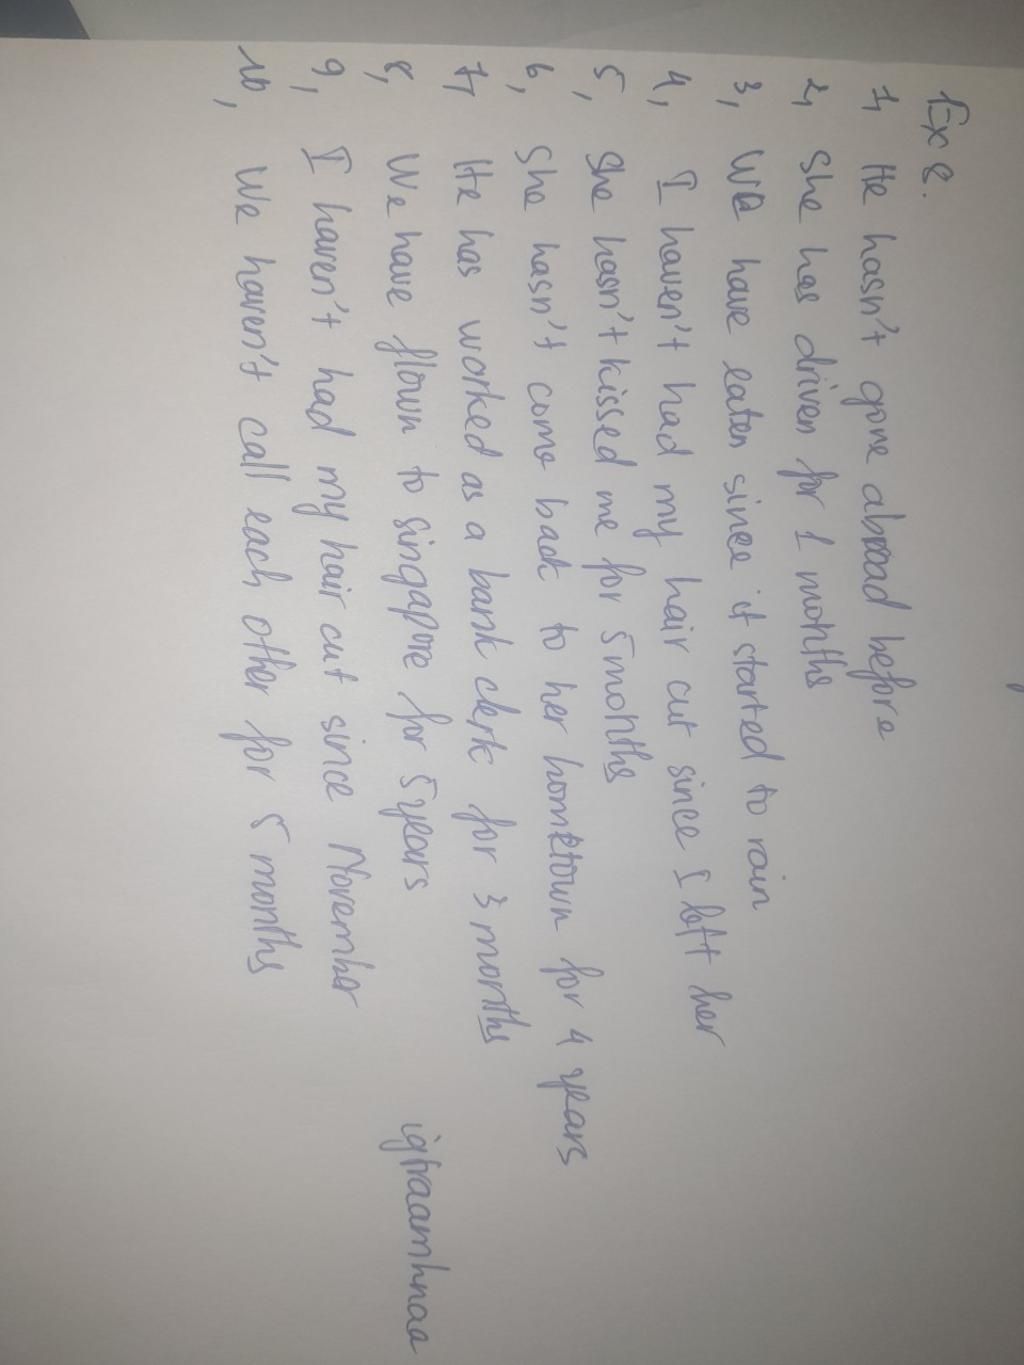 Ex 8.
1, He hasn't gone abroad before
2, She has driven for 1 months
3, We have eaten since it started to rain
4, I haven't had my hair cut since I left her
5, She hasn't kissed me for 5 months
6, She hasn't come back to her hometown for 4 years
7, He has worked as a bank clerk for 3 months
8, We have flown to Singapore for 5 years
9, I haven't had my hair cut since November
10, We haven't call each other for 5 months